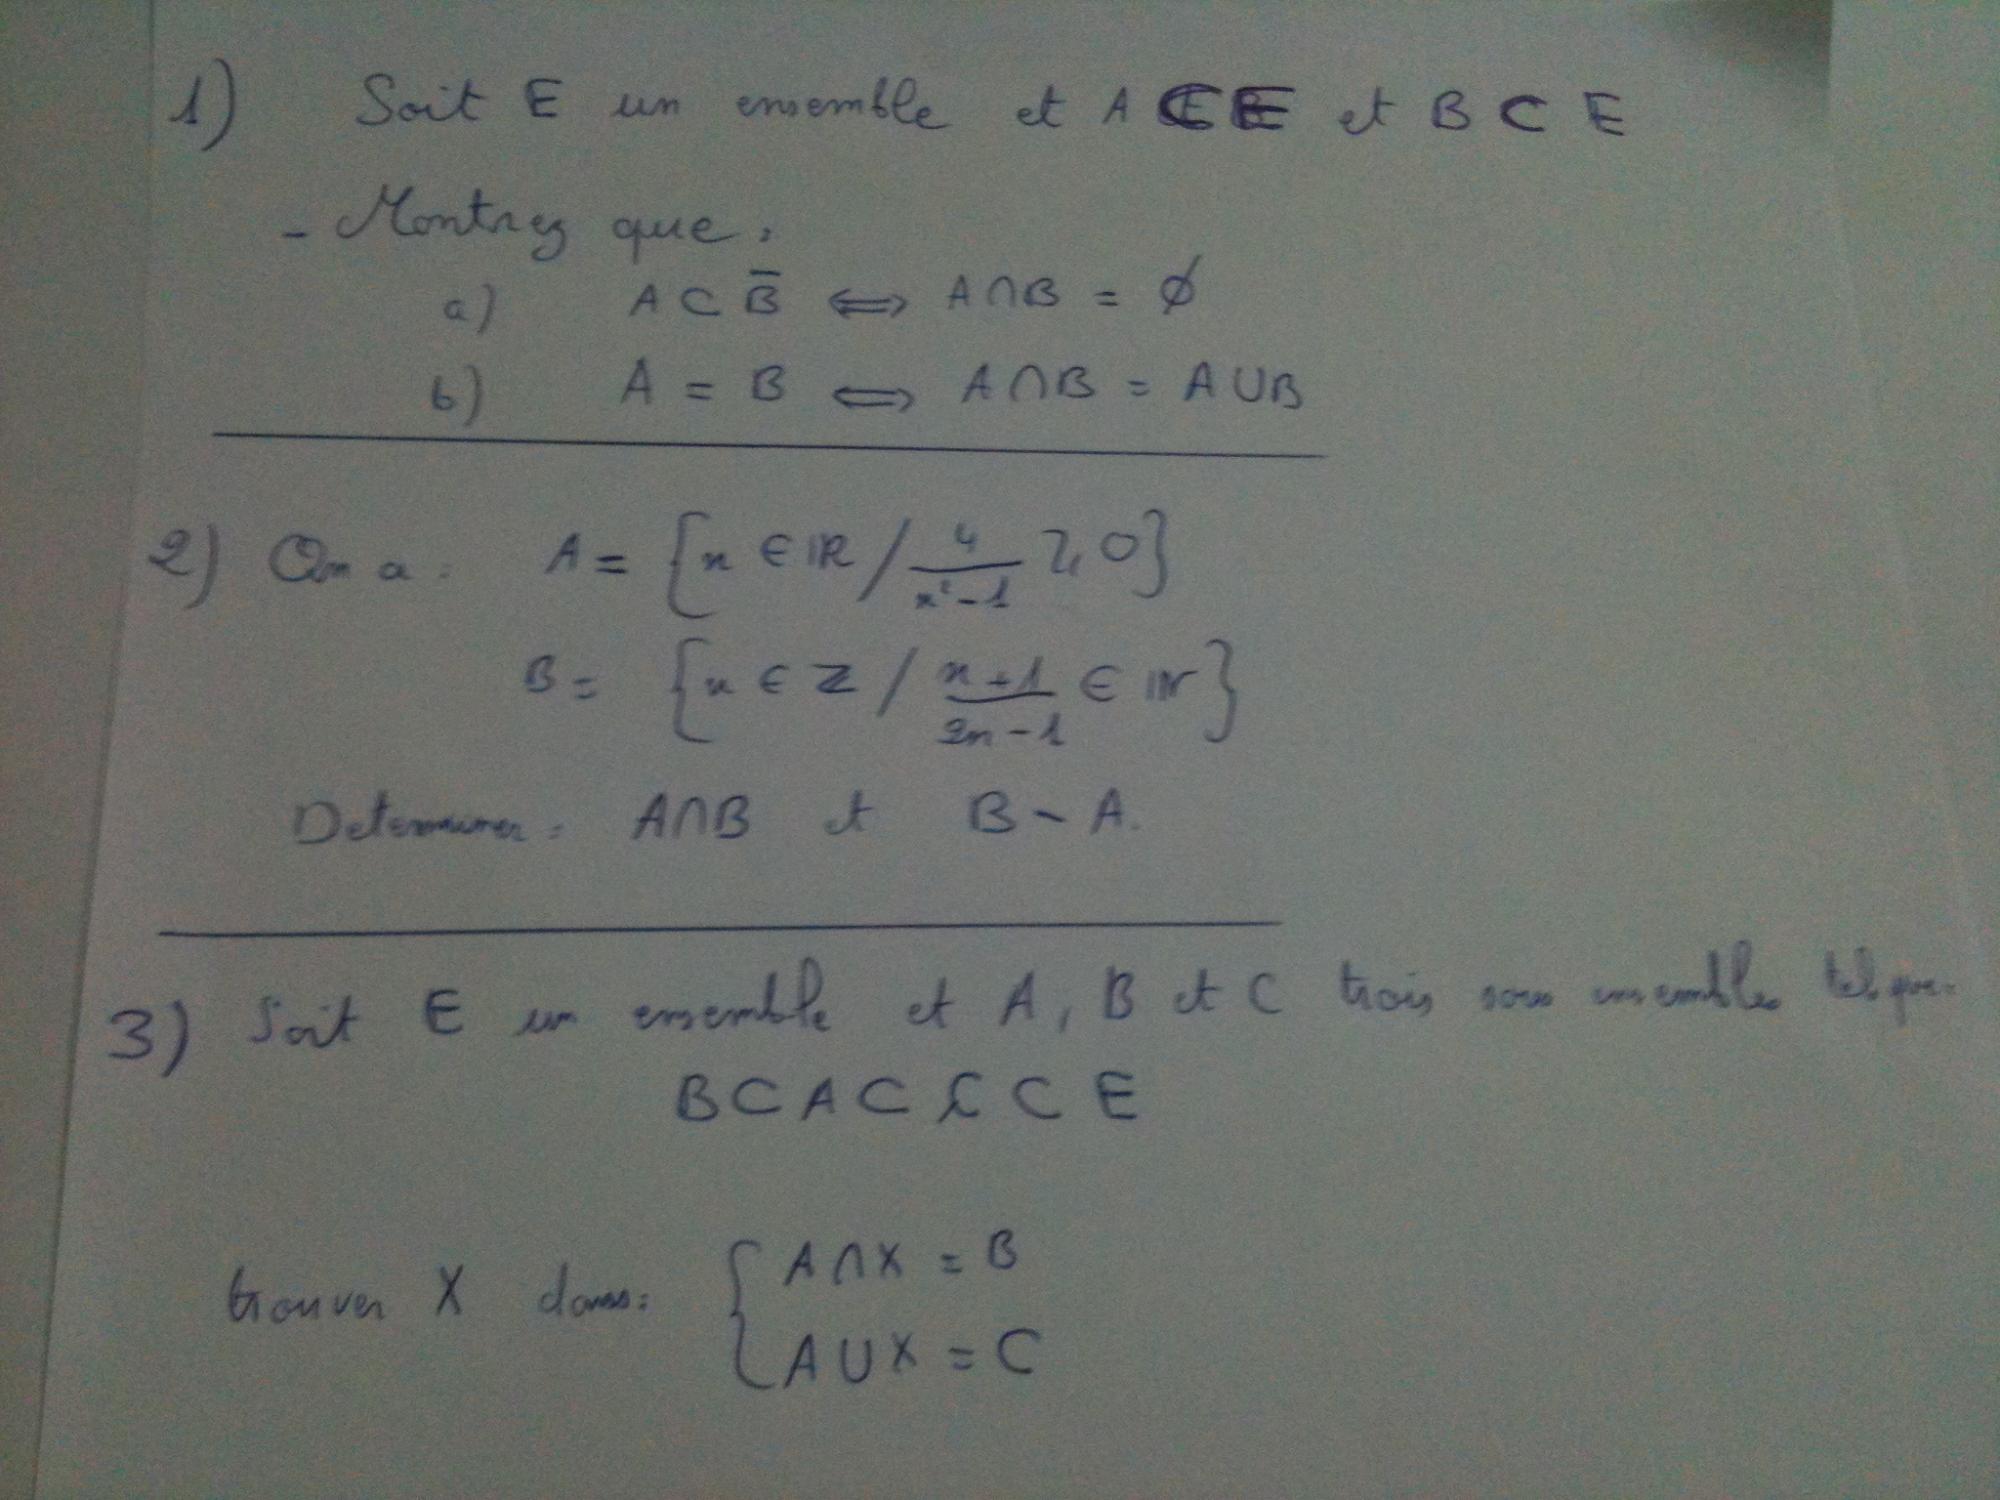 1) Soit E un ensemble et A ⊂ E et B ⊂ E
- Montrez que :
a) A ⊂ B̅ ⟺ A ∩ B = ∅
b) A = B ⟺ A ∩ B = A ∪ B
2) On a : A = {x ∈ ℝ / 4/(x²-1) ≥ 0}
B = {x ∈ Z / (x+1)/(2x-1) ∈ ℕ}
Determiner : A ∩ B et B - A.
3) Soit E un ensemble et A, B et C trois sous ensembles tel que
B ⊂ A ⊂ C ⊂ E
trouver X dans :
{ A ∩ X = B
A ∪ X = C